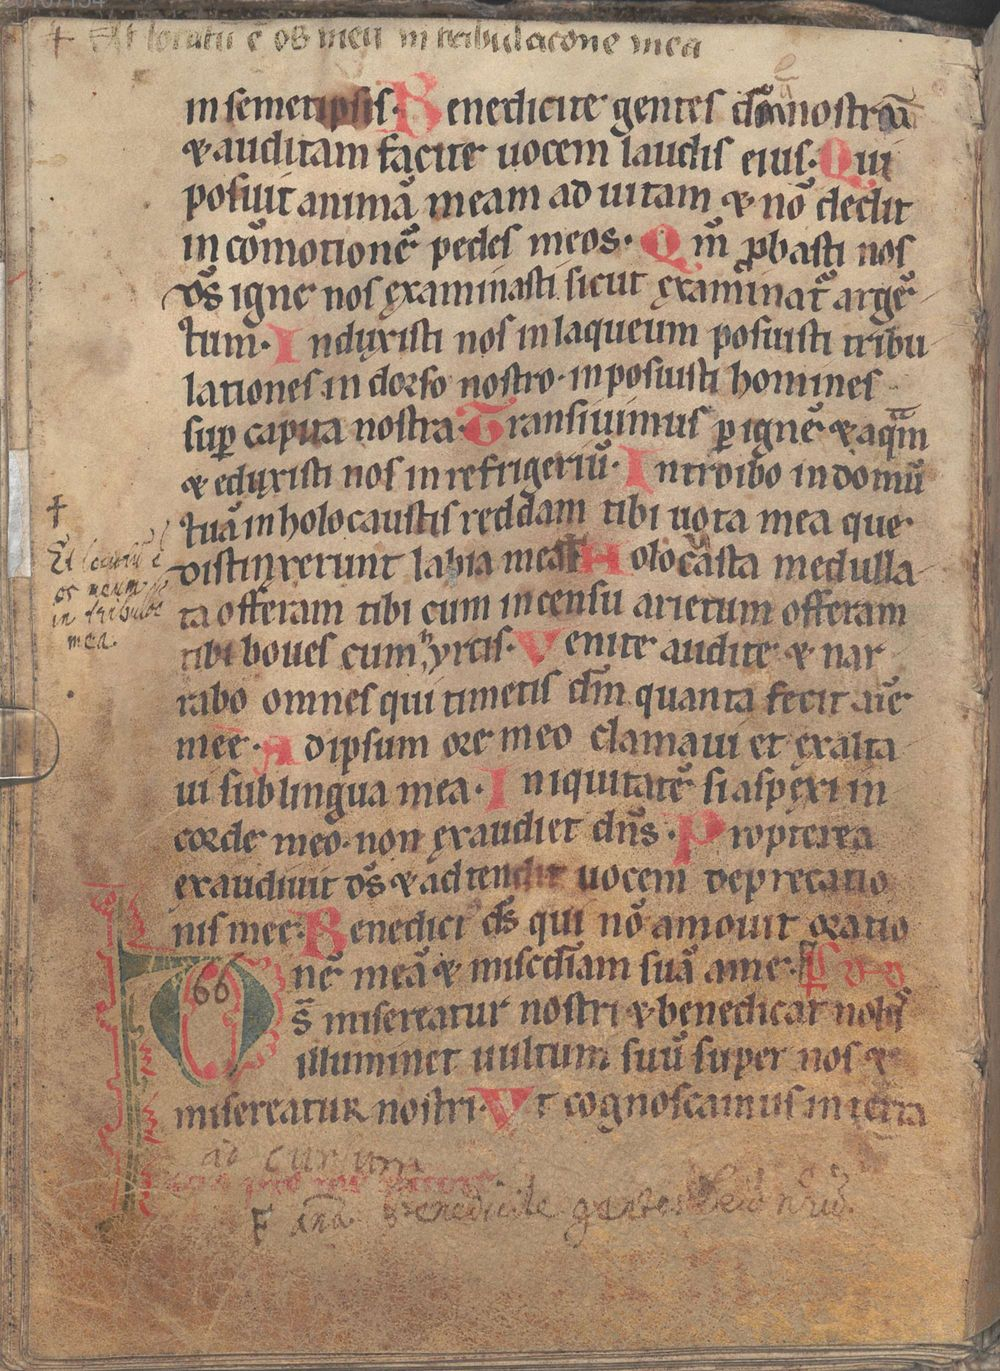 + Et locutū ē os meū in tribulacōne mea
in semetipsis. Benedicite gentes dm̄ nostrū
& auditam facite uocem laudis eius. Qui
posuit animā meam ad uitam & nō dedit
in cōmotionē pedes meos. Qm̄ ꝓbasti nos
ds̄ igne nos examinasti sicut examinat̄ argē
tum. Induxisti nos in laqueum posuisti tribu
lationes in dorso nostro. inposuisti homines
suꝑ capita nostra. Transiuimus ꝑ ignē & aquā
& eduxisti nos in refrigeriū. Introibo in domū
tuā in holocaustis reddam tibi uota mea que
distinxerunt labia mea + Holocasta medulla
ta offeram tibi cum incensu arietum offeram
tibi boues cum hyrcis. Venite audite & nar
rabo omnes qui timetis dm̄ quanta fecit aīe
mee. Ad ipsum ore meo clamaui et exalta
ui sub lingua mea. Iniquitatē si aspexi in
corde meo. non exaudiet dn̄s. Propterea
exaudiuit ds̄ & adtendit uocem deprecatio
nis mee. Benedict ds̄ qui nō amouit oratio
nē meā & misc̄diam suā a me.
66
D
s̄ misereatur nostri & benedicat nobis
illuminet uultum suū super nos &
misereatur nostri. Vt cognoscamus in terra
+
Et locutū ē
os meum
in tribulōe
mea.
ad cursum
F ana Benedicite gentes Deū nrūm.